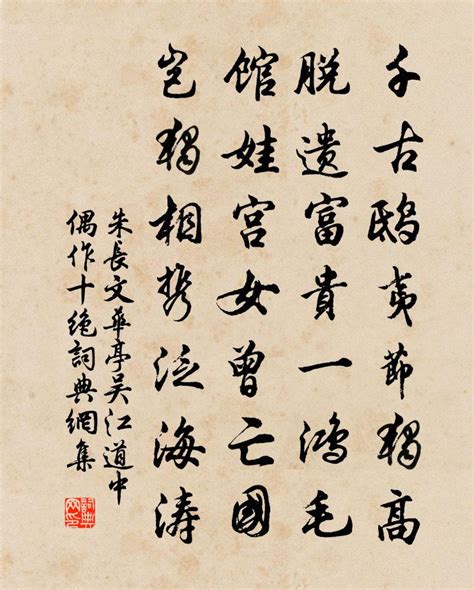 千古鴟夷節獨高
脱遺富貴一鴻毛
館娃宮女曾亡國
豈獨相携泛海濤
朱長文華亭吴江道中
偶作十絶詞典網集